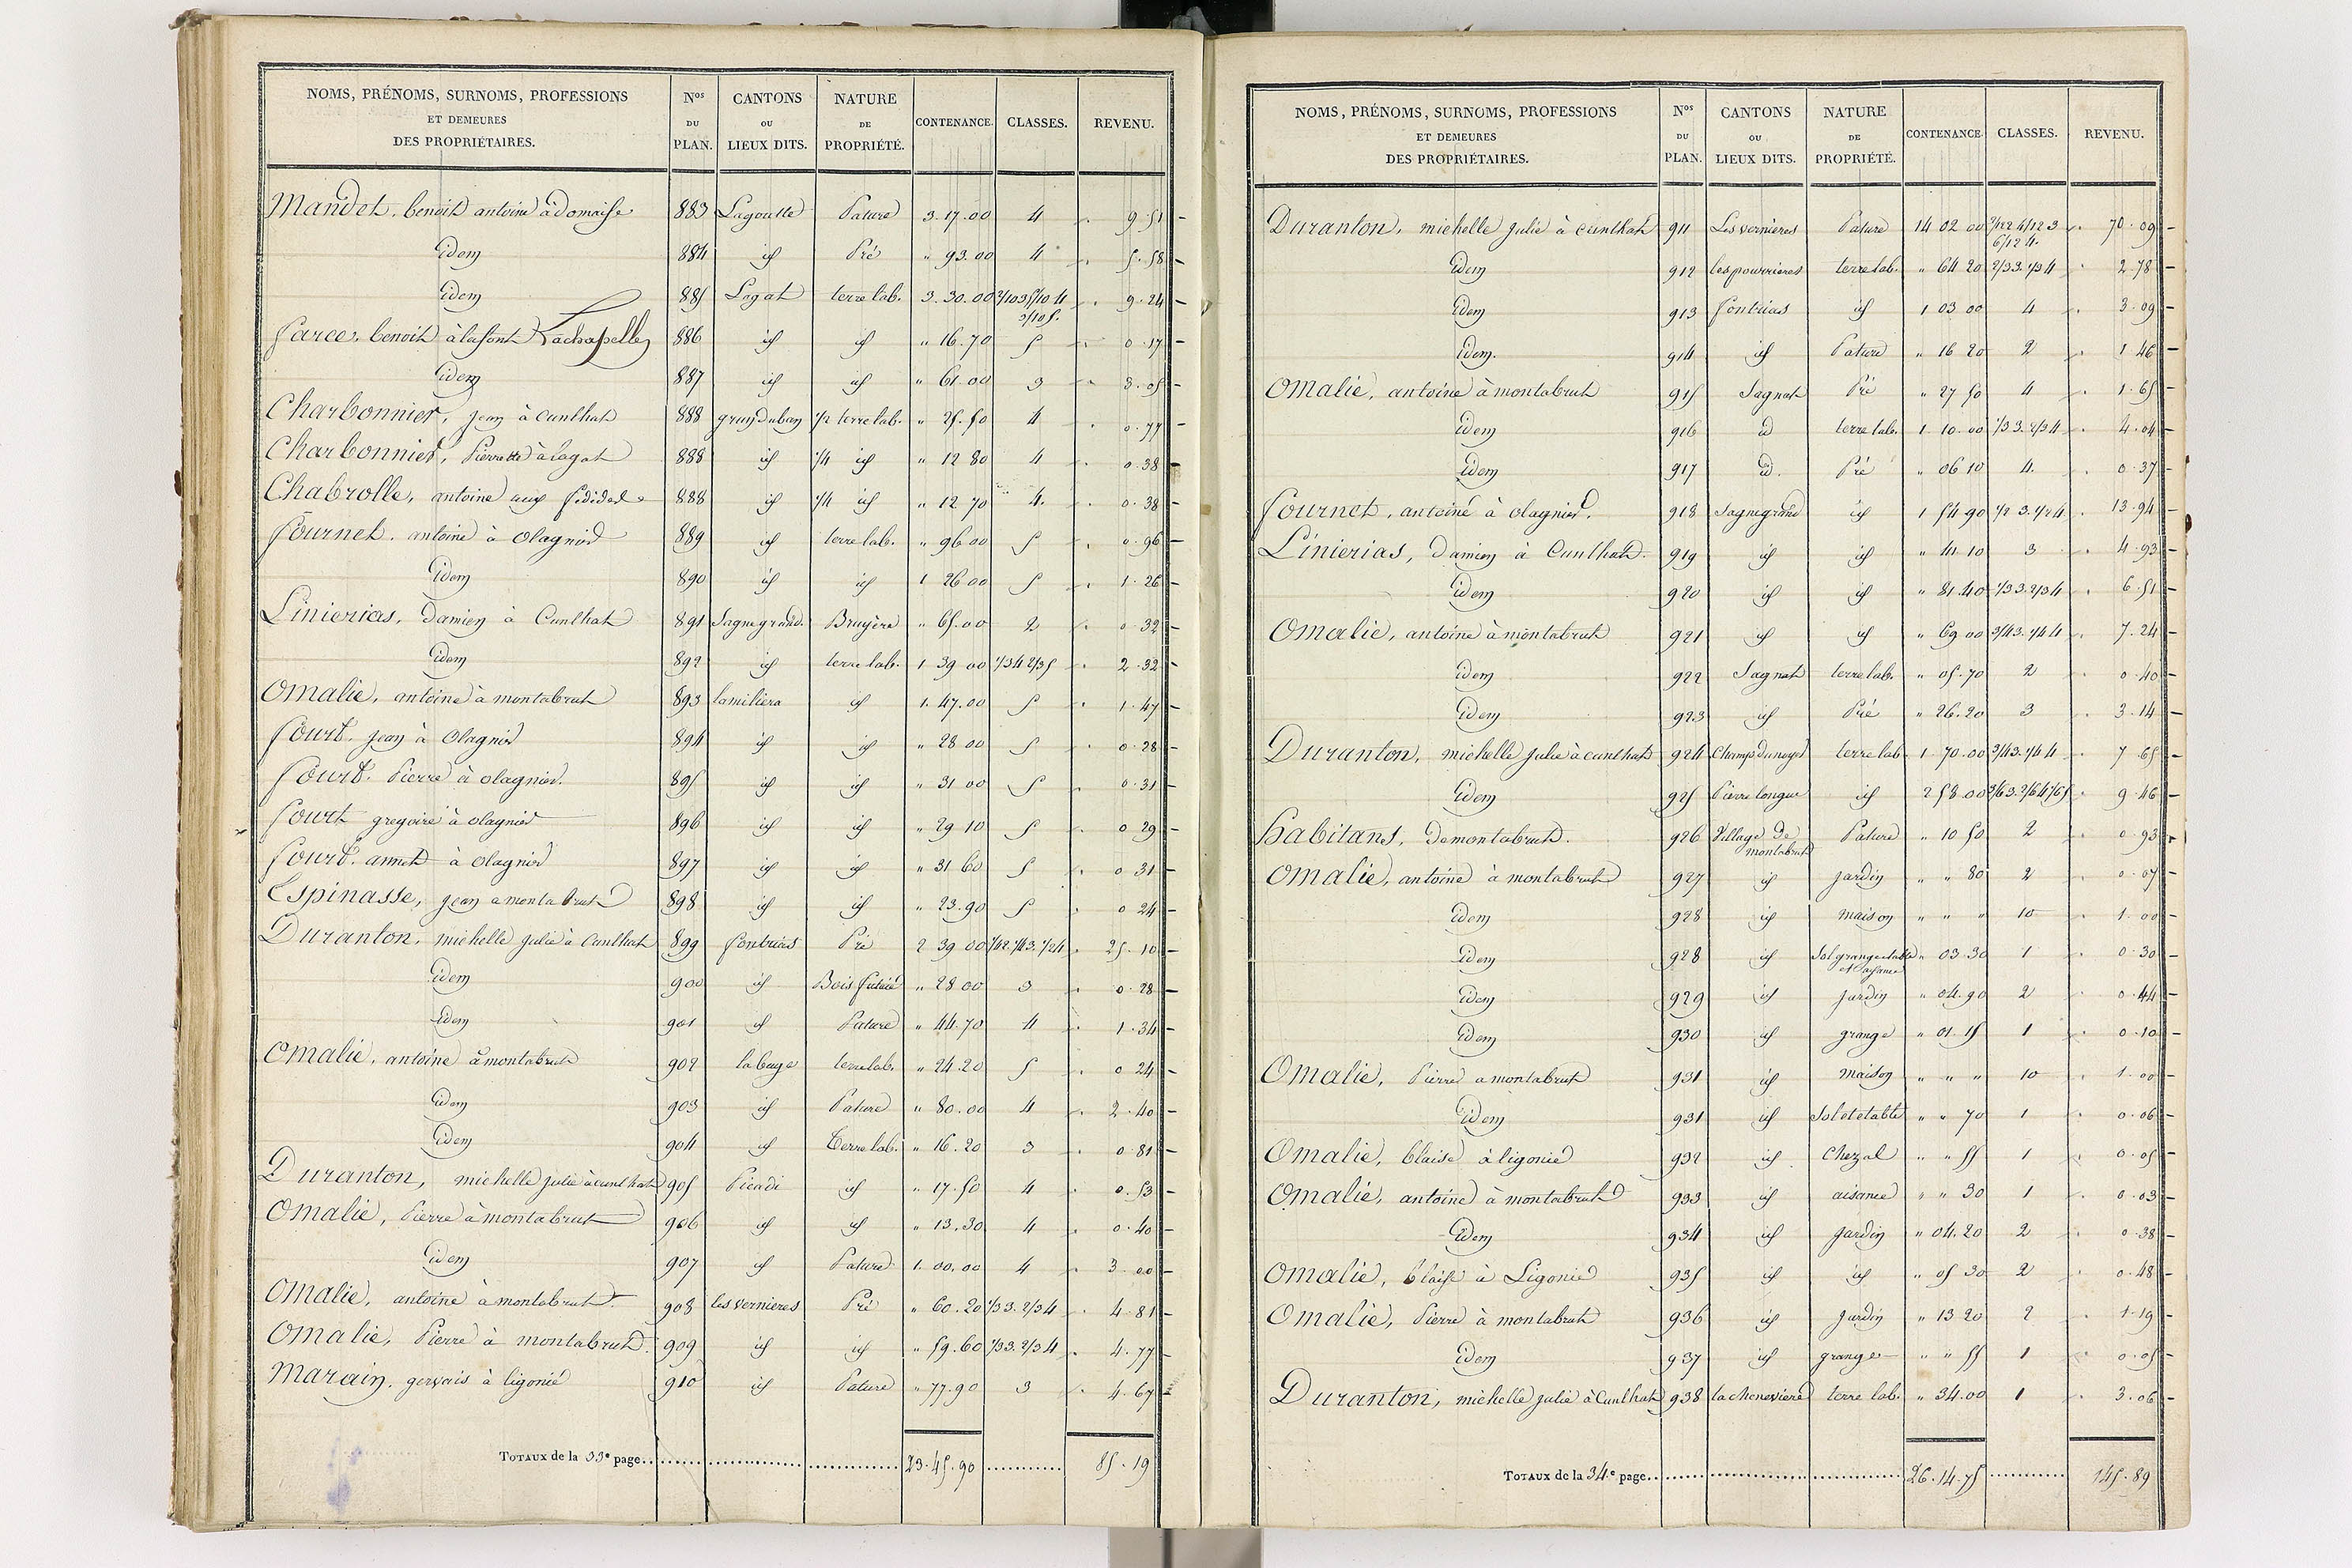 NOMS, PRÉNOMS, SURNOMS, PROFESSIONS ET DEMEURES DES PROPRIÉTAIRES. Nos DU PLAN. CANTONS OU LIEUX DITS. NATURE DE PROPRIÉTÉ. CONTENANCE. CLASSES. REVENU.
Mandet, benoit antoine à domaise 883 Lagoutte Pature 3.17.00 4 9.51
Idem 884 id Pré " 93.00 4 5.58
Idem 885 Lagat terre lab. 3.30.00 2/10 3 5/10 4 3/10 5. 9.24
farce, benoit à lafont Lachapelle 886 id id " 16.70 5 0.17
Idem 887 id id " 61.00 3 3.05
Charbonnier, jean à cunlhat 888 1/2 terre lab. " 25.50 4 0.77
Charbonnier, Pierrette à lagat 888 id 1/4 id " 12 80 4 0.38
Chabrolle, antoine aux 888 id 1/4 id " 12 70 4. 0.38
fournet, antoine à olagnier 889 id terre lab. " 96 00 5 0.96
Idem 890 id id 1 26 00 5 1.26
Linierias, Damien à Cunlhat 891 Sagnegrand. Bruyère " 65.00 2 0.32
Idem 892 id terre lab. 1 39 00 1/3 4 2/3 5 2.32
Omalie, antoine à montabrut 893 lamiliera id 1.47.00 5 1.47
fourt, jean à Olagnier 894 id id " 28 00 5 0.28
fourt. Pierre à olagnier. 895 id id " 31 00 5 0.31
fourt gregoire à olagnier 896 id id " 29 10 5 0 29
fourt. annet à olagnier 897 id id " 31 60 5 0 31
Espinasse, jean a montabrut 898 id id " 23.90 5 0 24
Duranton, michelle julie à Cunlhat 899 fontrias Pré 2 39 00 1/4 2 1/4 3. 1/2 4 25.10
Idem 900 id Bois futaie " 28 00 3 0.28
Idem 901 id Pature " 44.70 4 1.34
Omalie, antoine à montabrut 902 labuge terre lab. " 24.20 5 0 24
Idem 903 id Pature " 80.00 4 2.40
Idem 904 id Terre lab. " 16.20 3 0.81
Duranton, michelle julie à cunlhat 905 Picadi id " 17.50 4 0.53
Omalie, Pierre à montabrut 906 id id " 13.30 4 0.40
Idem 907 id Pature 1.00.00 4 3.00
Omalie, antoine à montabrut. 908 les vernieres Pré " 60.20 1/3 3. 2/3 4 4.81
Omalie, Pierre à montabrut. 909 id id " 59.60 1/3 3. 2/3 4 4.77
Marain, gervais à ligonié 910 id Pature " 77.90 3 4.67
TOTAUX de la 33e page 23.45.90 85.19
NOMS, PRÉNOMS, SURNOMS, PROFESSIONS ET DEMEURES DES PROPRIÉTAIRES. Nos DU PLAN. CANTONS OU LIEUX DITS. NATURE DE PROPRIÉTÉ. CONTENANCE. CLASSES. REVENU.
Duranton, michelle julie à cunlhat 911 Les vernières Pature 14 02 00 2/12 2 4/12 3 6/12 4. 70.09
Idem 912 terre lab. " 64 20 2/3 3. 1/3 4 2.78
Idem 913 fontrias id 1 03 00 4 3.09
Idem. 914 id Pature " 16 20 2 1 46
Omalie, antoine à montabrut 915 Sagnat Pré " 27 50 4 1.65
Idem 916 id terre lab. 1.10.00 1/3 3. 2/3 4 4.04
Idem 917 id. Pré " 06 10 4. 0.37
fournet, antoine à olagnier. 918 Sagnegrand id 1 54 90 1/2 3. 1/2 4 13.94
Linierias, Damien à Cunlhat. 919 id id " 41 10 3 4.93
Idem 920 id id " 81.40 1/3 3. 2/3 4 6.51
Omalie, antoine à montabrut 921 id id " 69 00 3/4 3. 1/4 4 7.24
Idem 922 Sagnat terre lab. " 05.70 2 0.40
Idem 923 id Pré " 26.20 3 3.14
Duranton, michelle julie à cunlhat 924 Champ du noyer terre lab 1.70.00 3/4 3. 1/4 4 7 65
Idem 925 Pierre longue id 2 58 00 3/6 3. 2/6 4 1/6 5 9.46
habitans, de montabrut. 926 Village de montabrut Pature " 10 50 2 0 93
Omalie, antoine à montabrut 927 id jardin " " 80 2 0.07
Idem 928 id maison " " " 10 1.00
Idem 928 id Sol grange etable et aisance " 03.30 1 0.30
Idem 929 id jardin " 04.90 2 0.44
Idem 930 id grange " 01 15 1 0.10
Omalie, Pierre a montabrut 931 id maison " " " 10 1.00
Idem 931 id Sol et etable " " 70 1 0.06
Omalie, blaise à ligonié 932 id Chezal " " 55 1 0.05
Omalie, antoine à montabrut 933 id aisance " " 30 1 0.03
Idem 934 id jardin " 04.20 2 0.38
Omalie, blaise à Ligonié 935 id id " 05 30 2 0.48
Omalie, Pierre à montabrut 936 id jardin " 13 20 2 1.19
Idem 937 id grange " " 55 1 0.05
Duranton, michelle julie à Cunlhat 938 la cheneviere terre lab. " 34.00 1 3.06
TOTAUX de la 34e page 26.14.75 145.89